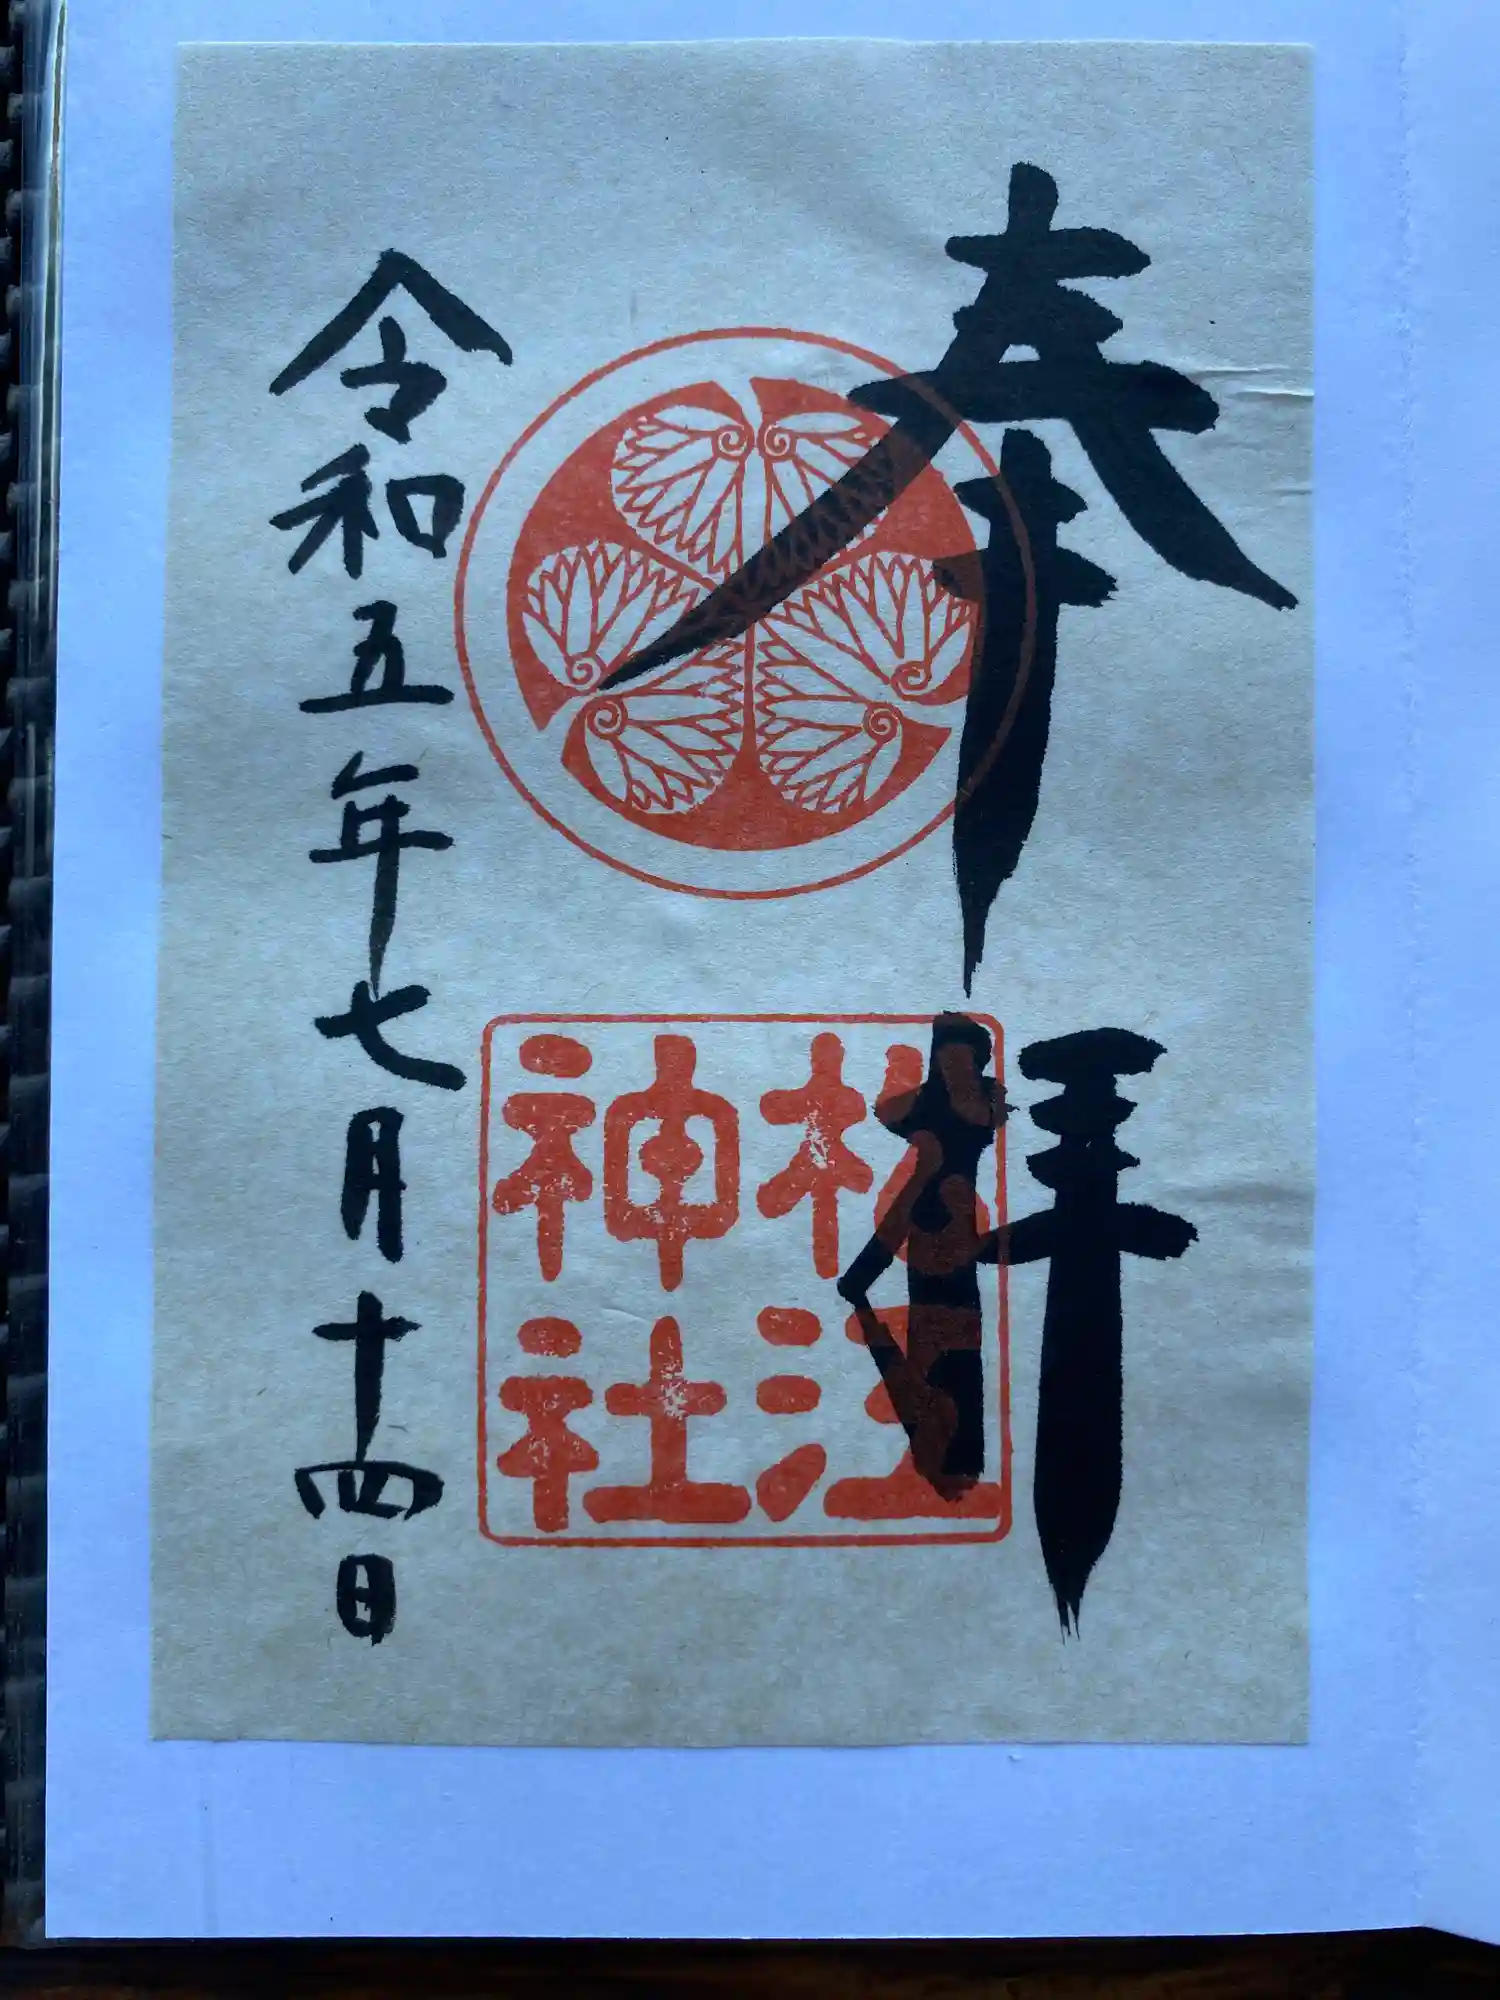 奉拝
松江神社
令和五年七月十四日